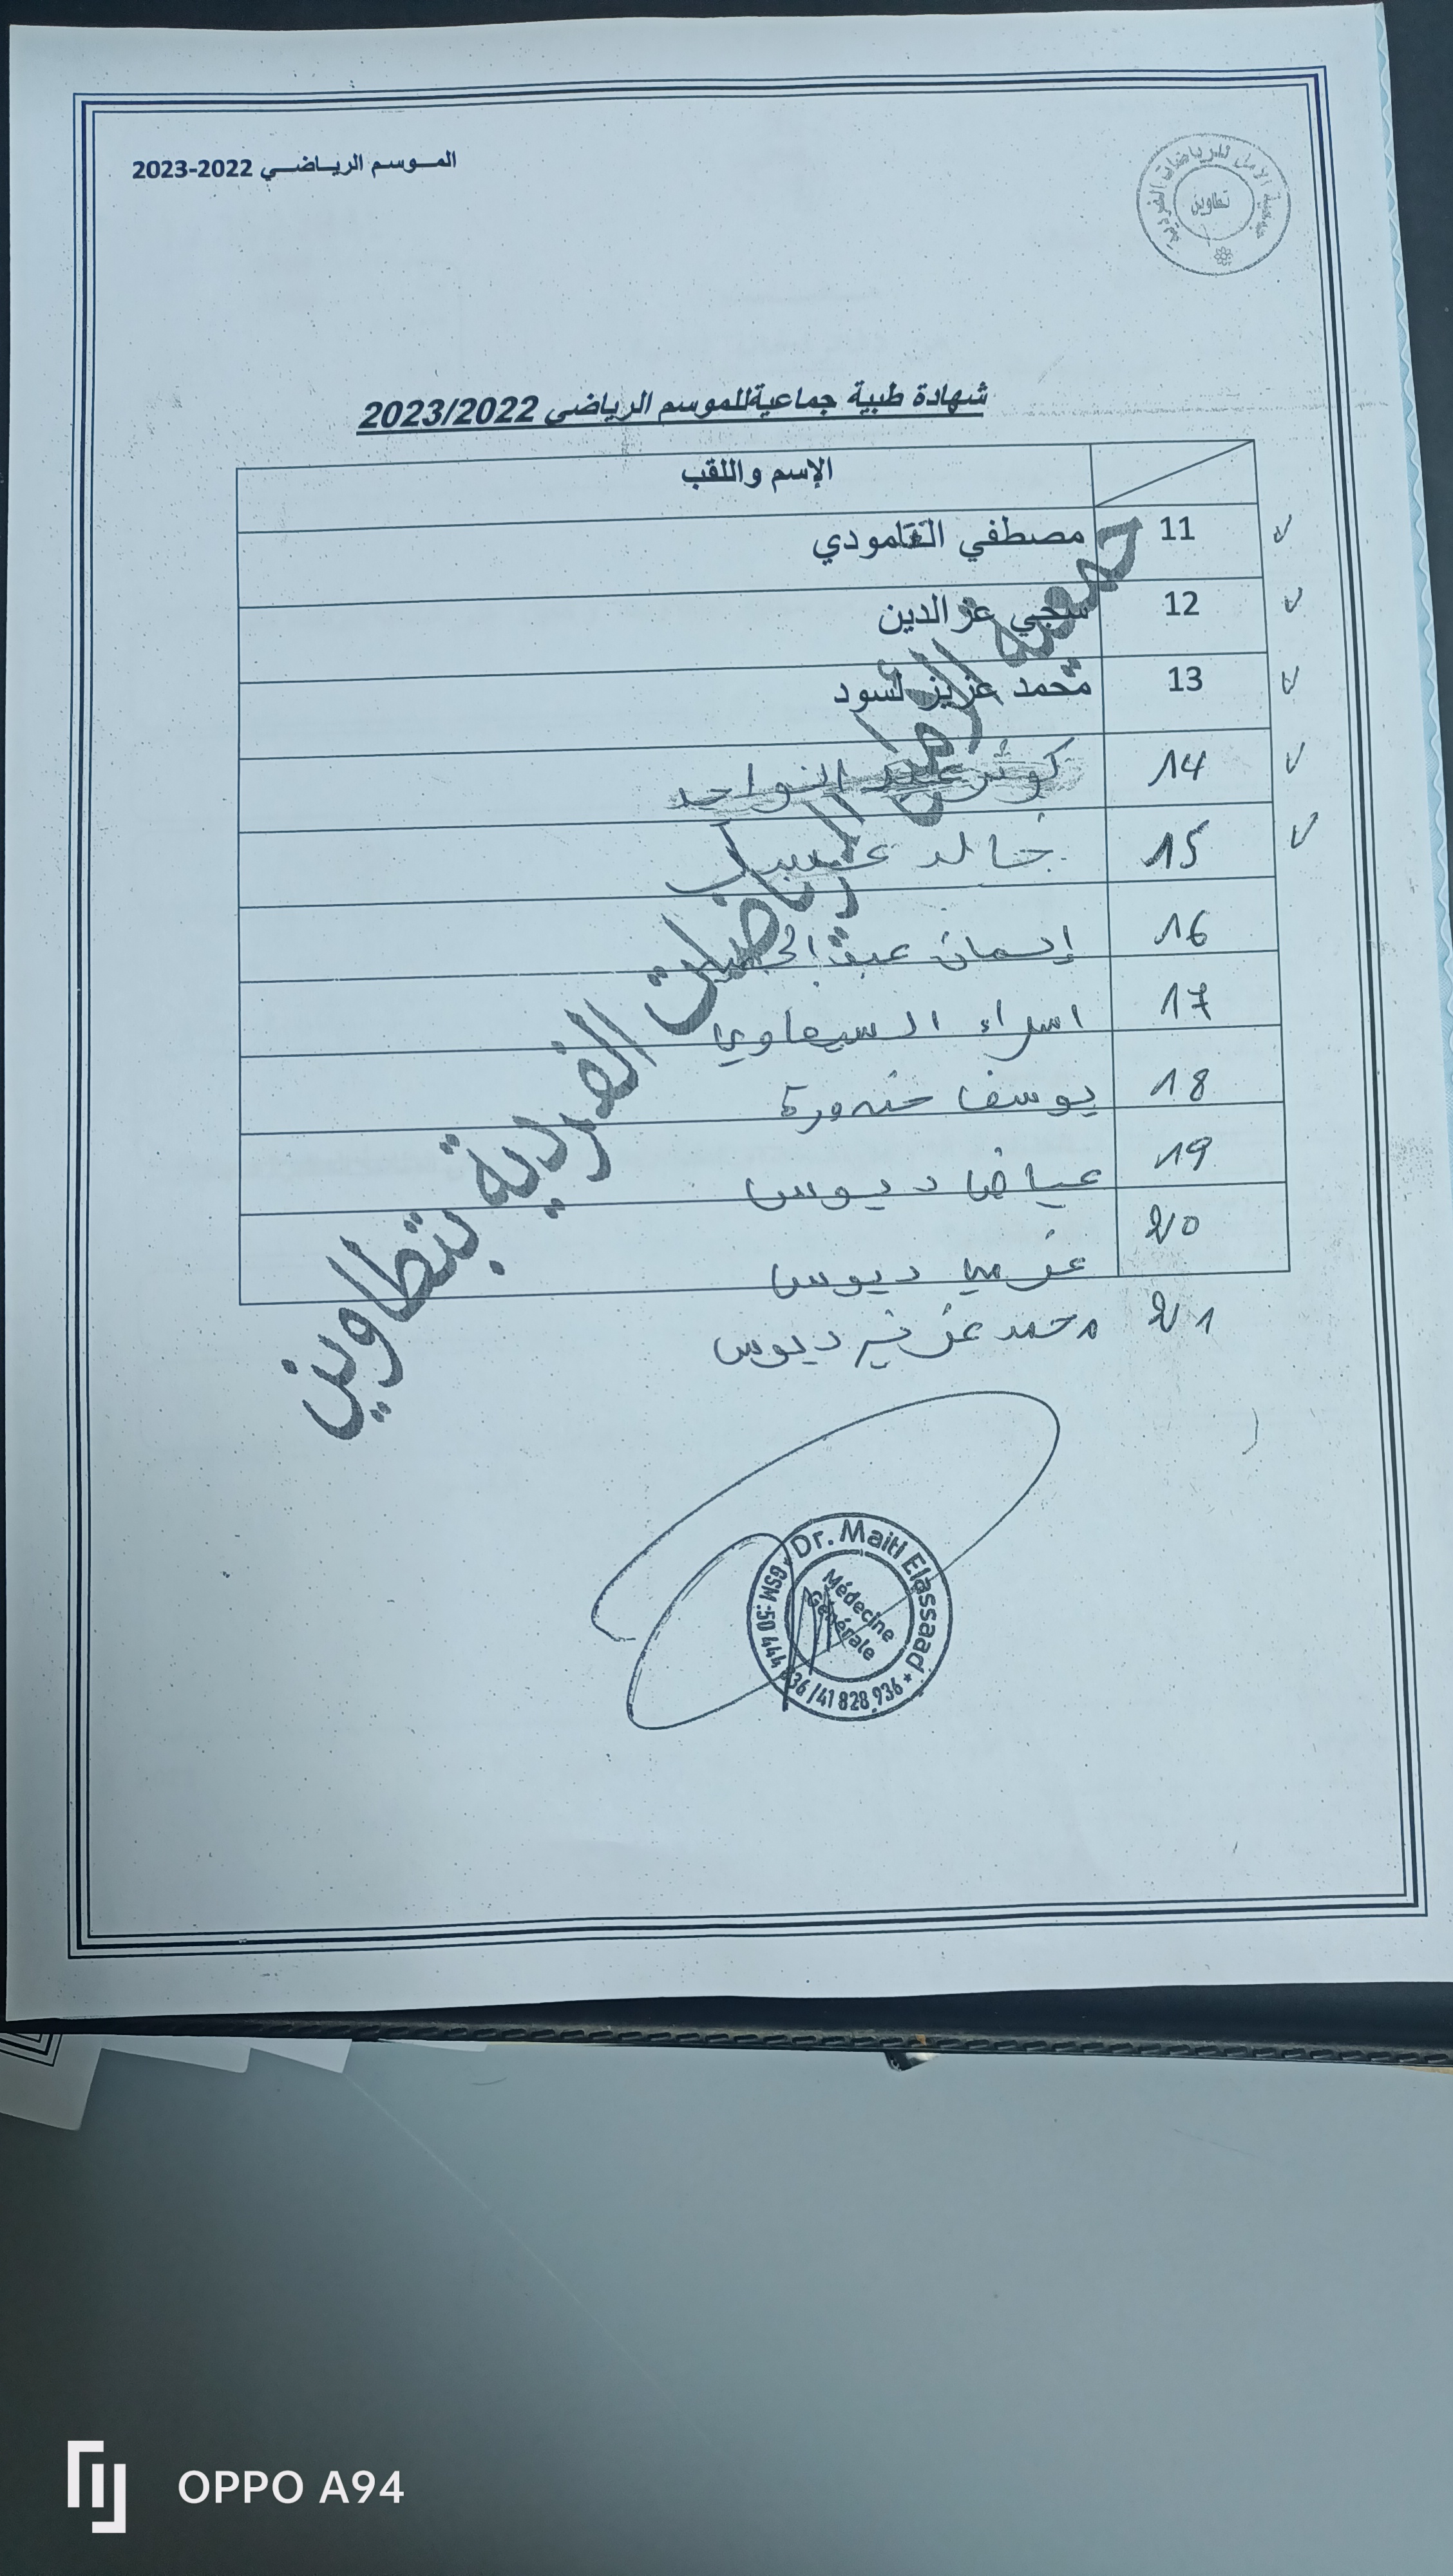 الموسم الرياضي 2022-2023
جمعية الأمل للرياضات الفردية
تطاوين
شهادة طبية جماعيةللموسم الرياضي 2023/2022
الإسم واللقب
11 مصطفي القامودي
12 سجي عز الدين
13 محمد عزيز لسود
14 كوثر عبد الواحد
15 خالد
16 إيمان
17 اسراء السيفاوي
18 يوسف خنورة
19 عياض ديوس
20 ديوس
21 محمد عزيز ديوس
جمعية الأمل للرياضات الفردية بتطاوين
Dr. Maiti Elassaad
Médecine
Générale
GSM :50 444 936 /41 828 936 *
OPPO A94